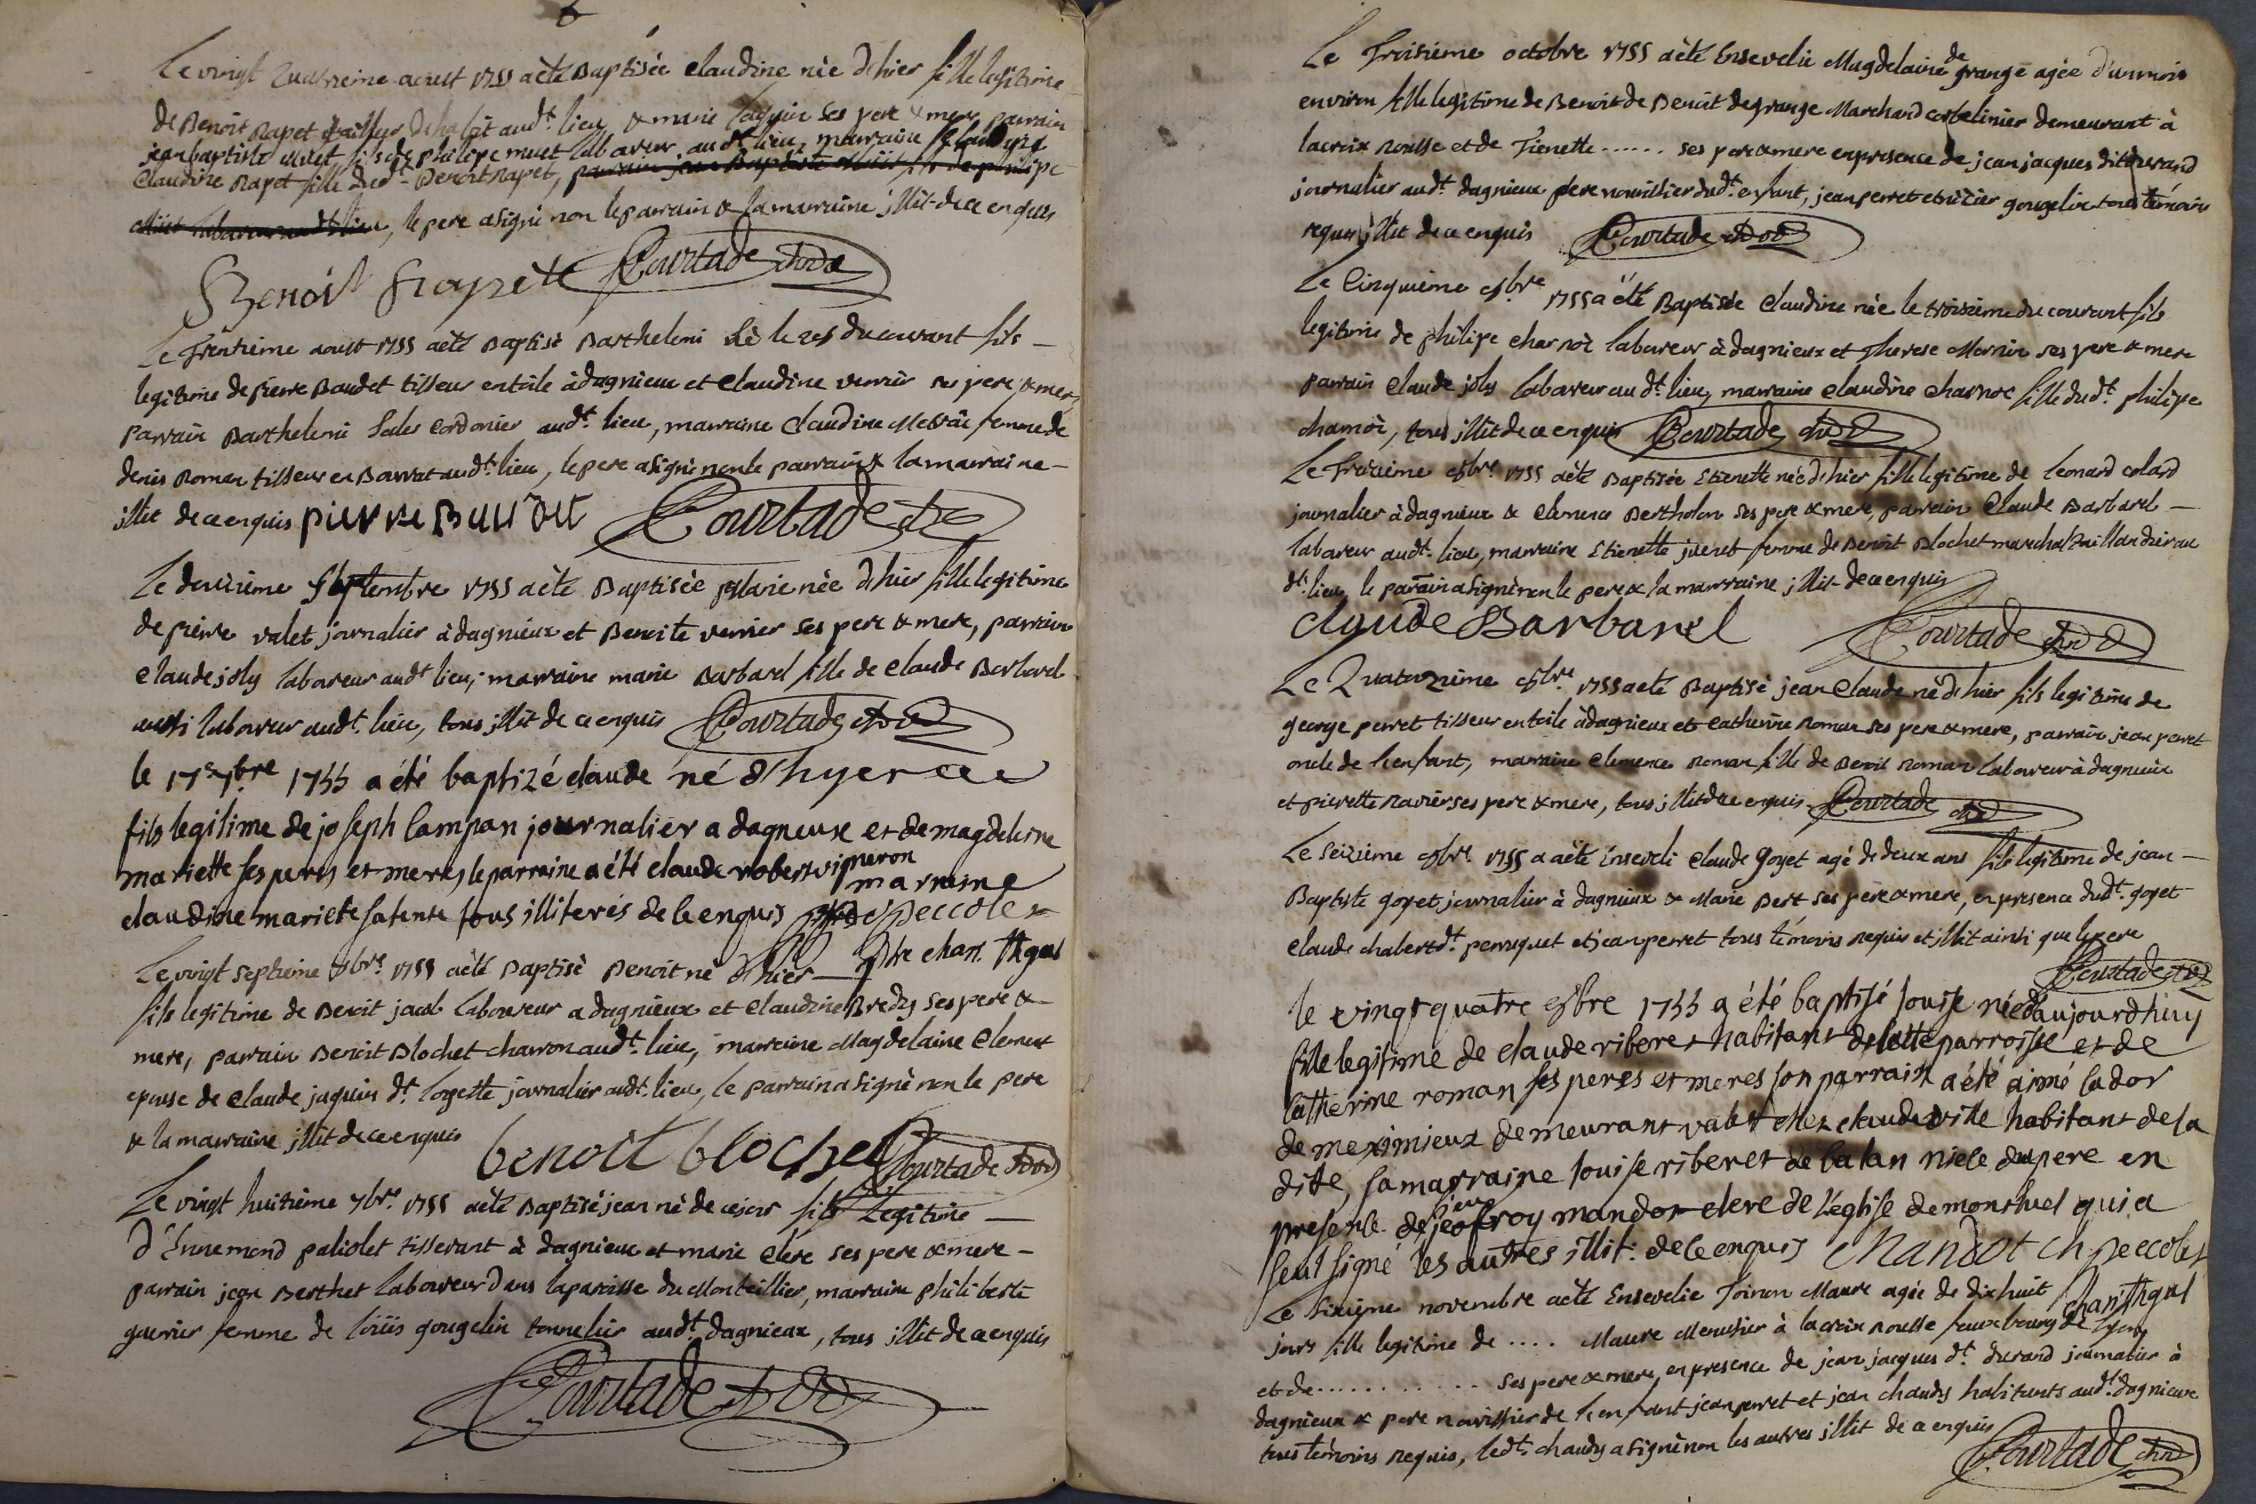 Le vingt quatrieme aoust 1755 a èté Baptisèe Claudine nèe d'hier fille legitime
de Benoit Rapet audt. lieu & marie ses pere & mere, parrain
jean baptiste muet fils de philipe muet laboureur audt. lieu, marraine
Claudine Rapet fille dudt. Benoit Rapet, parrain jean Baptiste fils de philipe
laboureur audt. lieu, le pere a signè non le parrain & la marraine illit. de ce enquis
Benoit Courtade
Le Trentieme aoust 1755 a èté Baptisè Barthelemi nè le du courant fils
legitime de pierre Baudet tisseur en toile à dagnieux et Claudine verrier ses pere & mere,
parrain Barthelemi Sales Cordonier audt. lieu, marraine Claudine femme de
denis Roman tisseur en audt. lieu, le pere a signè non le parrain & la marraine
illit. de ce enquis pierre Baudet Courtade
Le deuxième Septembre 1755 a èté Baptisèe Marie nèe d'hier fille legitime
de pierre valet journalier à dagnieux et Benoite verrier ses pere & mere, parrain
Claude joly laboureur audt. lieu, marraine marie Barbarel fille de Claude Barbarel
aussi laboureur audt. lieu, tous illit. de ce enquis Courtade
le 17e 7bre 1755 a été baptizé claude né d'hyer
fils legitime de joseph Campan journalier a dagneux et de magdeleine
mariette ses peres et meres le parraine a été claude robert vigneron
marraine
claudine mariete sa tente tous illiterés de ce enquis peccolet
ptre chan. thgal
Le vingt septieme 7bre. 1755 a èté Baptisè Benoit nè d'hier
fils legitime de Benoit jacob laboureur a dagnieux et Claudine Bredy ses pere &
mere, parrain Benoit Blochet charron audt. lieu, marraine Magdelaine Clement
epouse de Claude jaquin dt. journalier audt. lieu, le parrain a signè non le pere
& la marraine illit. de ce enquis benoit blochet Courtade
Le vingt huitième 7bre. 1755 a èté Baptisè jean nè de ce jour fils Legitime
d'Ennemond paliolet tisserant à dagnieux et marie Clére ses pere & mere
parrain jean Berthet laboureur dans la paroisse du Montellier, marraine philiberte
guerier femme de loüis gougelin tonnelier audt. dagnieux, tous illit. de ce enquis
Courtade
Le Troisième octobre 1755 a èté Ensevelie Magdelaine de grange agèe d'un mois
environ fille legitime de Benoit de Benoit degrange Marchand demeurant à
la croix Rousse et de Fienette ...... ses pere & mere en presence de jean jacques dit durand
journalier audt. dagnieux pere nourissier dudt. enfant, jean perret et gougelin tous temoins
requis illit. de ce enquis Courtade
Le Cinquième 8bre 1755 a èté Baptisèe Claudine nèe le troisième du courant fils
legitime de philipe Charnoi laboureur à dagnieux et Therese Mornier ses pere & mere
parrain Claude joly laboureur audt. lieu, marraine Claudine Charnoi fille dudt. philipe
charnoi, tous illit. de ce enquis Courtade
Le Treizieme 8bre. 1755 a èté Baptisèe Etienette nèe d'hier fille legitime de Leonard Colard
journalier à dagnieux & Clemence Bertholon ses pere & mere, parrain Claude Barbarel
laboureur audt. lieu, marraine Etienette femme de Benoit Blochet marechal taillandier au
dt. lieu, le parrain a signè non le pere & la marraine illit. de ce enquis
Claude Barbarel Courtade
Le Quatorzieme 8bre 1755 a èté Baptisè jean Claude nè d'hier fils legitime de
george perret tisseur en toile à dagnieux et Catherine Roman ses pere & mere, parrain jean perret
oncle de l'enfant, marraine Clemence Roman fille de Benoit Roman laboureur à dagnieux
et pierrette Ravier ses pere & mere, tous illit. de ce enquis Courtade
Le Seizième 8bre. 1755 a èté Enseveli Claude Goyet agè de deux ans fils legitime de jean
Baptiste goyet journalier à dagnieux & Marie Bert ses pere & mere, en presence dudt. goyet
Claude chabert dt. perruquet et jean perret tous témoins requis et illit ainsi que le pere
Courtade
le vingt quatre 8bre 1755 a été baptisé louise née d'aujourdhuy
fille legitime de claude riberet habitant de cette parroisse et de
catherine roman ses peres et meres son parrain a été aimé cador
de meximieux demeurant valet chez claude ville habitant de la
dite, sa marraine louise riberet de balan niece du pere en
presence de jeofroy mandot clerc de l'églisse de montluel qui a
seul signé les autres illit. de ce enquis Mandot ch peccolet
chan. thgal
Le Sixieme novembre a èté Ensevelie Toinon Maure agèe de dix huit
jours fille legitime de .... Maure Menusier à la croix Rousse fauxbourg de lyon
et de ............ ses pere & mere, en presence de jean jacques dt. durand journalier à
dagnieux & pere nourissier de l'enfant jean perret et jean chaudy habitants audt. dagnieux
tous témoins requis, ledt. chaudy a signè non les autres illit de ce enquis Courtade